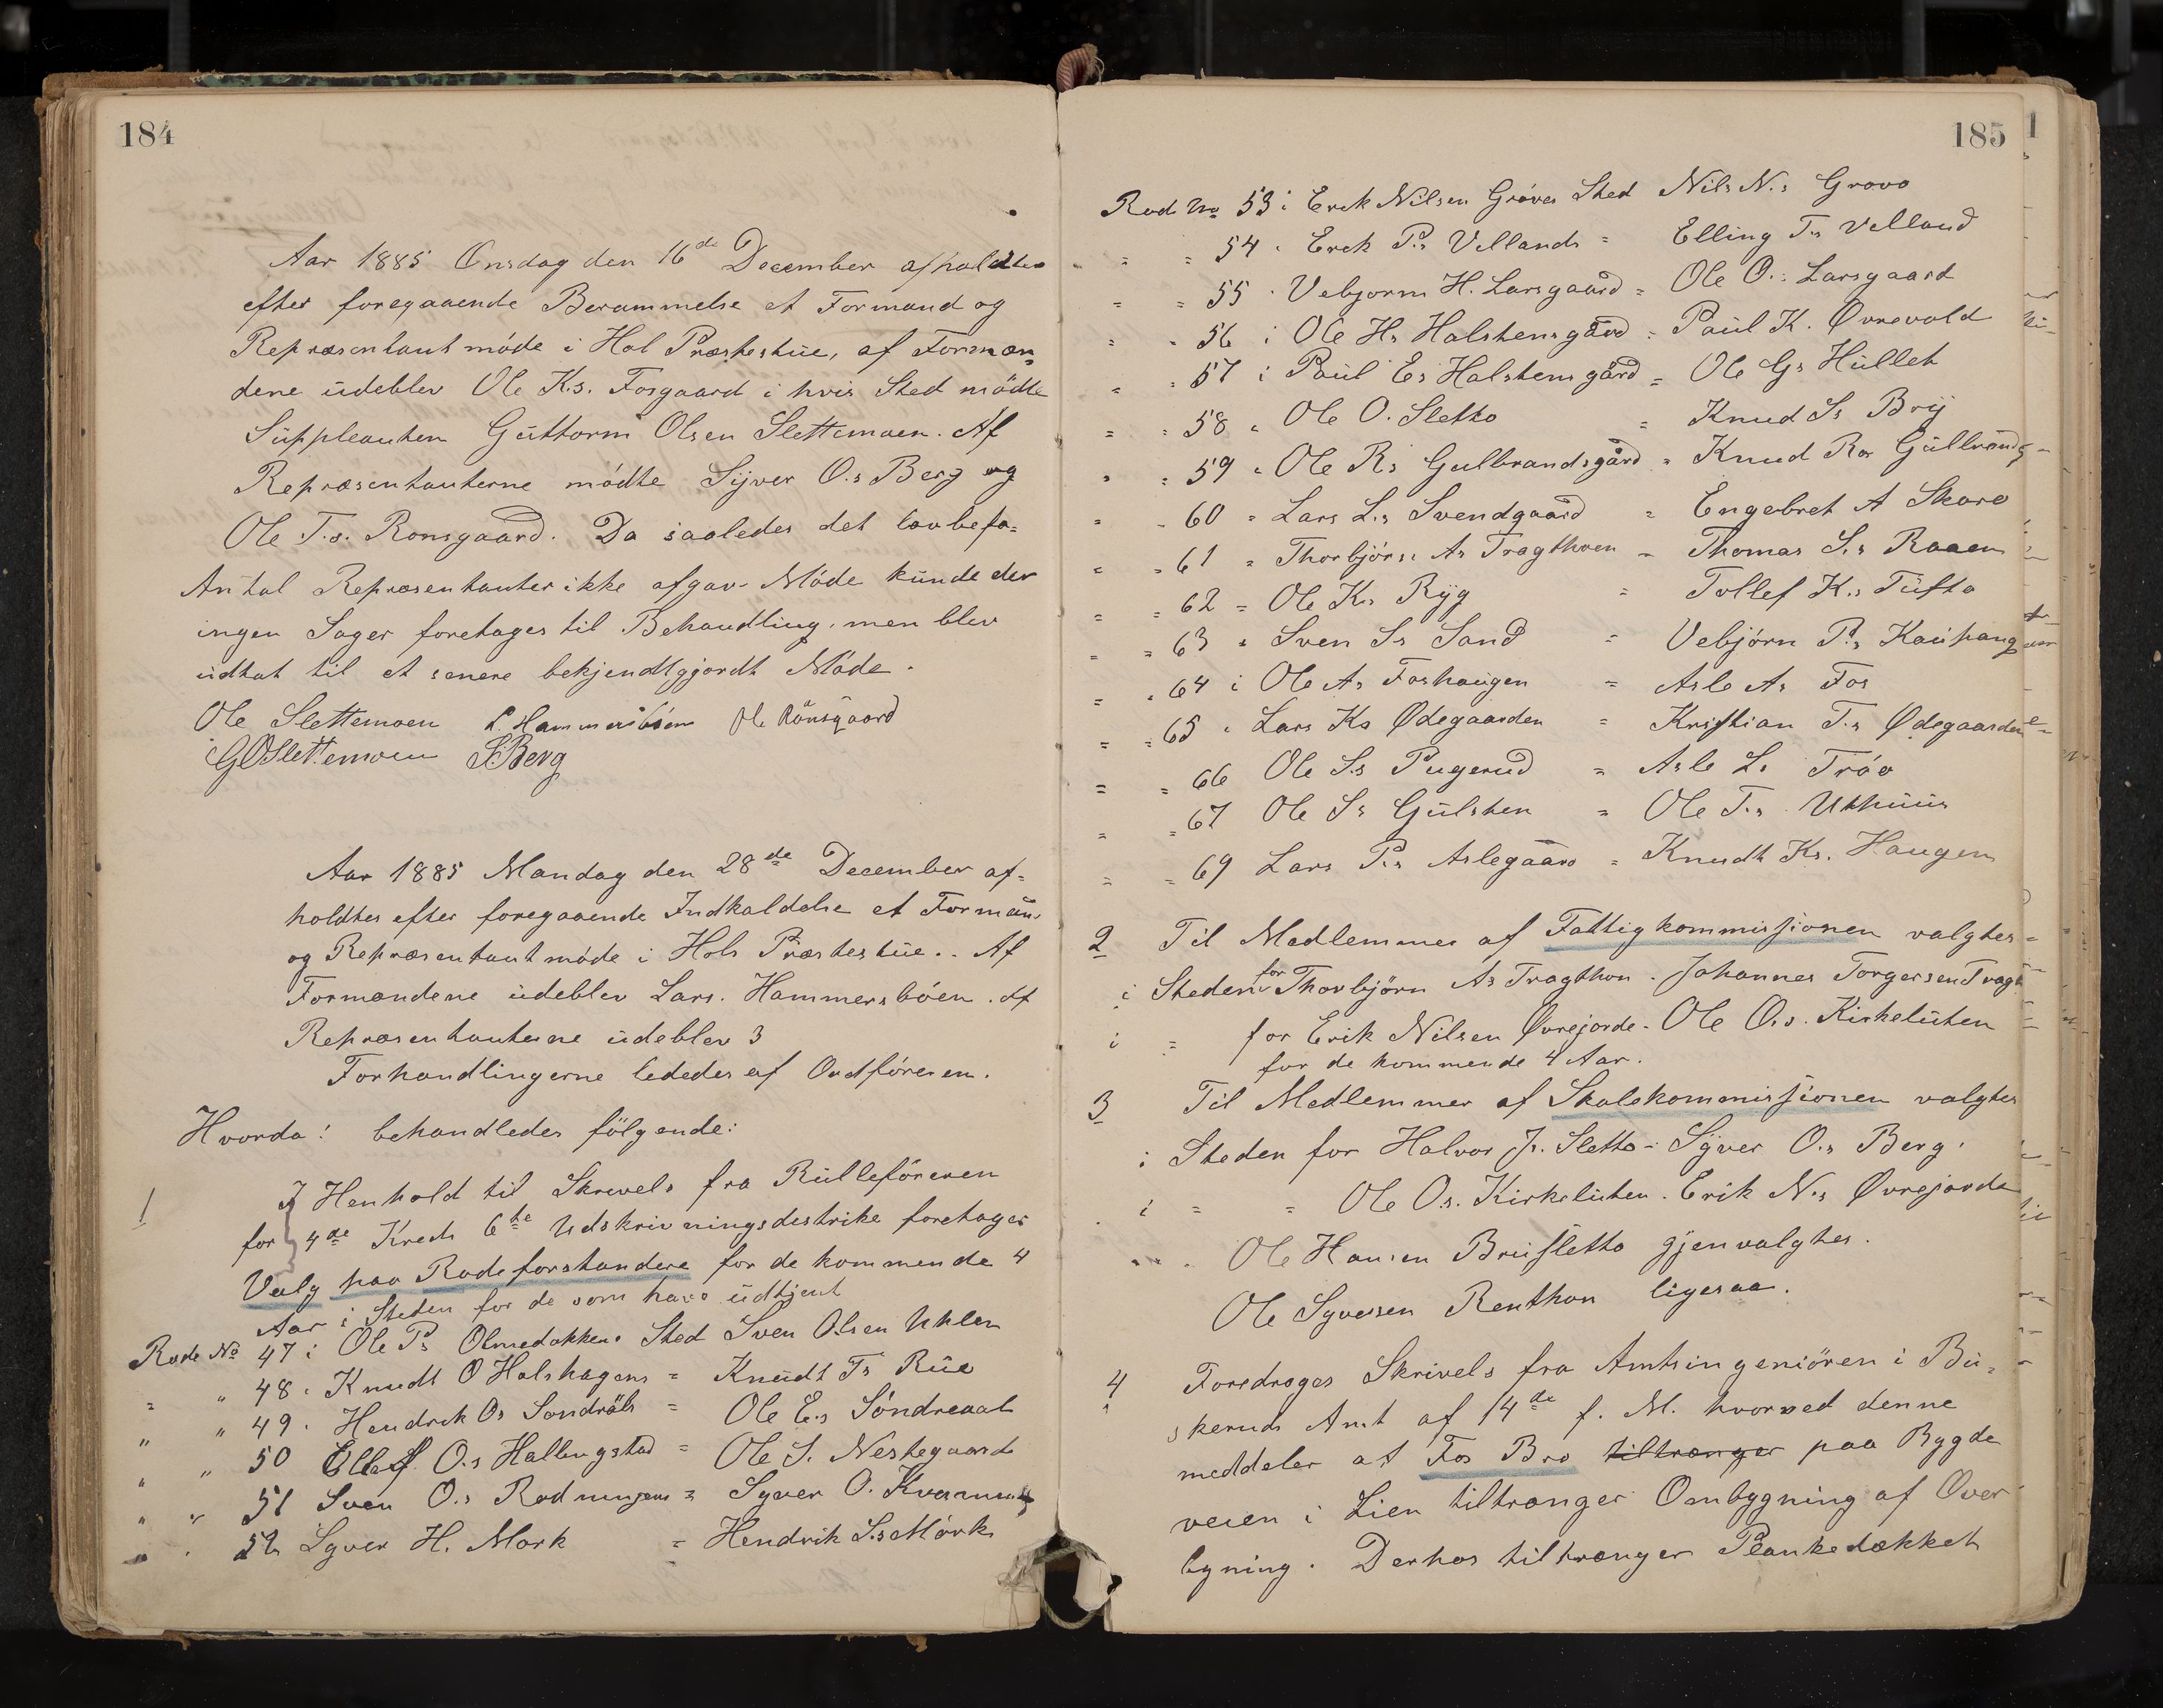 184
Aar 1885 Onsdag den 16de December afholdtes
efter foregaaende Berammelse et Formand og
Repræsentantmöde i Hol Præstestue, af Formæn=
dene udeblev Ole K.s. Fosgaard i hvis Sted mödte
Suppleanten Guttorm Olsen Slettemoen. Af
Repræsentanterne mödte Sijver O.s Berg og
Ole T.s. Ronsgaard. Da saaledes det lovbefa=
Antal Repræsentanter ikke afgav Möde kunde der
ingen Sager foretages til Behandling, men blev
udsat til et senere bekjendtgjordt Möde.
Ole Slettemoen L. Hammersböen Ole Rönsgaard
GOSlettemoen S. Berg
Aar 1885 Mandag den 28de December af=
holdtes efter foregaaende Indkaldelse et Formans
og Repræsentantmöde i Hols Præstestue.. Af
Formændene udeblev Lars. Hammersböen. Af
Repræsentanterne udeblev 3
Forhandlingerne lededes af Ordföreren.
Hvorda! behandledes fölgende:
1 I Henhold til Skrivels fra Rulleföreren
for 4de Kreds 6te Udskrivningsdestrikt foretoges
Valg paa Rodeforstandere for de kommende 4
Aar i Steden for de som have udtjent
Rode No 47 i Ole P.s Olmedokkens Sted Sven Olsen Uhlen
" " 48 . Knudt O Holshagens = Knudt T.s Rue
" " 49 . Hendrik Os Sondräls = Ole E.s Söndreaal
" " 50 Ellef O.s Hallingstad = Ole S. Nestegaard
" " 51 Sven O.s Rodnungen = Syver O.
" . 52 Syver H. Mork = Hendrik S.s Mörk
185
Rode No 53 i Erik Nilsen Gröves Sted Nils N.s Grovo
= = 54 . Erek P.s Villands = Elling T.s Villand
= = 55 . Vebjorm H. Larsgaard = Ole O.s Larsgaard
= = 56 i Ole H.s Holstensgård = Paul K. Övrevold
= = 57 i Paul E.s Holstensgård = Ole G.s Hullet
= = 58 " Ole O. Sletto = Knud S.s Bry
= = 59 " Ole R.s Gulbrandsgård = Knud R.s Gullbrandsg=
= = 60 = Lars L.s Svendgaard = Engebret A Skaro
= = 61 = Thorbjörn A.s Tragthoen = Thomas S.s Raaen
= = 62 = Ole K.s Ryg = Tollef K.s Tufto
= = 63 " Sven S.s Sand = Vebjörn P.s Kaupang
= = 64 i Ole A.s Foshaugen = Asle A.s Fos
= = 65 . Lars K.s Ödegaarden = Kristian T.s Ödegaarden
= = 66 Ole S.s Pugerud = Asle L.s Tröo
= = 67 Ole S.s Gulsten = Ole T.s Uthuus
= = 69 Lars P.s Aslegaard = Knudt Ks. Haugen
2 Til Medlemmer af Fattigkommissionen valgtes=
i Steden for Thorbjörn A.s Tragthon . Johannes Torgersen Tragt
i = for Erik Nilsen Övrejorde = Ole O.s. Kirkeluten
for de kommende 4 Aar.
3 Til Medlemmer af Skolekommissionen valgtes
i Steden for Halvor J.s Sletto = Syver O.s Berg .
i = = Ole O.s. Kirkeluten . Erik N.s Övrejorde
Ole Hansen Brusletto gjenvalgtes.
Ole Syversen Renthon ligesaa.
4 Foredroges Skrivels fra Amtsingeniören i Bu=
skeruds Amt af 14de f. M. hvorved denne
meddeler at Fos Bro tiltrænger paa Bygde
veien i Lien tiltrænger Ombygning af Over
bygning. Derhos tiltrænger Plankedækket